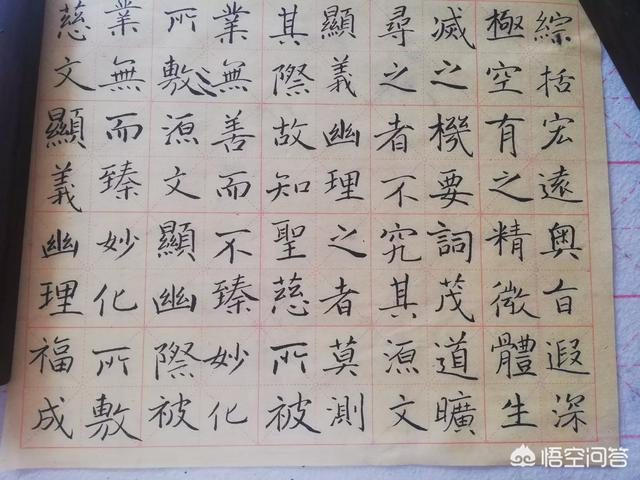 綜括宏遠奧旨遐深
極空有之精微體生
滅之機要詞茂道曠
尋之者不究其源文
顯義幽理之者莫測
其際故知聖慈所被
業無善而不臻妙化
所敷源文顯幽際被
業無而臻妙化所敷
慈文顯義幽理福成
悟空问答